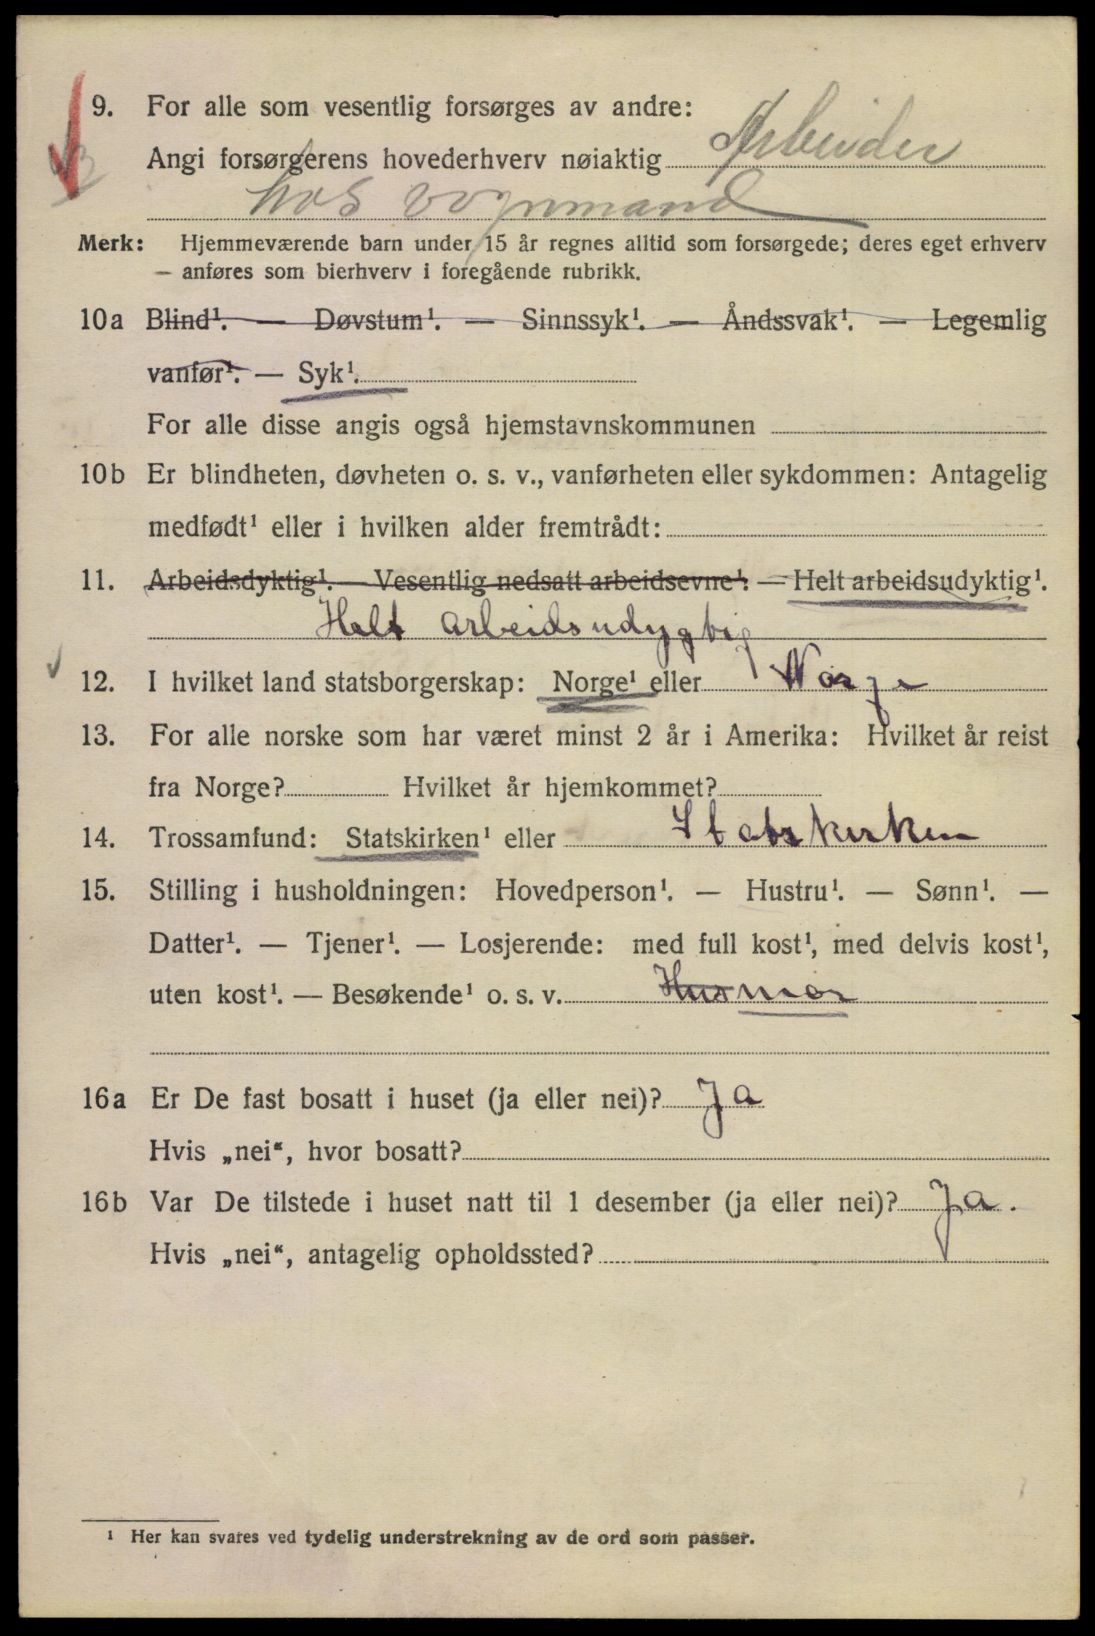 9. For alle som vesentlig forsørges av andre:
Angi forsørgerens hovederhverv nøiaktig Arbeider
hos vognmand
Merk: Hjemmeværende barn under 15 år regnes alltid som forsørgede; deres eget erhverv
— anføres som bierhverv i foregående rubrikk.
10a Blind¹. — Døvstum¹. — Sinnssyk¹. — Åndssvak¹. — Legemlig
vanfør¹. — Syk¹.
For alle disse angis også hjemstavnskommunen
10b Er blindheten, døvheten o. s. v., vanførheten eller sykdommen: Antagelig
medfødt¹ eller i hvilken alder fremtrådt:
11. Arbeidsdyktig¹. — Vesentlig nedsatt arbeidsevne¹. — Helt arbeidsudyktig¹.
Helt arbeidsudygtig
12. I hvilket land statsborgerskap: Norge¹ eller Norge
13. For alle norske som har været minst 2 år i Amerika: Hvilket år reist
fra Norge? Hvilket år hjemkommet?
14. Trossamfund: Statskirken¹ eller Statskirken
15. Stilling i husholdningen: Hovedperson¹. — Hustru¹. — Sønn¹. —
Datter¹. — Tjener¹. — Losjerende: med full kost¹, med delvis kost¹,
uten kost¹. — Besøkende¹ o. s. v. Husmor
16a Er De fast bosatt i huset (ja eller nei)? Ja
Hvis „nei“, hvor bosatt?
16b Var De tilstede i huset natt til 1 desember (ja eller nei)? Ja.
Hvis „nei“, antagelig opholdssted?
¹ Her kan svares ved tydelig understrekning av de ord som passer.